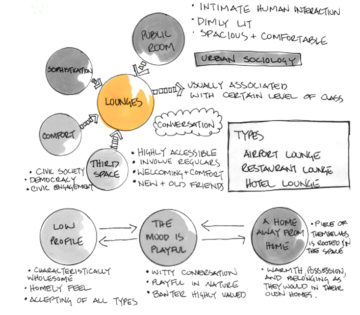 PUBLIC
ROOM
• INTIMATE HUMAN INTERACTION
• DIMLY LIT
• SPACIOUS + COMFORTABLE
URBAN SOCIOLOGY
SOPHISTICATION
LOUNGES
USUALLY ASSOCIATED
WITH CERTAIN LEVEL OF CLASS
CONVERSATION
COMFORT
THIRD
SPACE
• CIVIC SOCIETY
• DEMOCRACY
• CIVIC ENGAGEMENT
• HIGHLY ACCESSIBLE
• INVOLVE REGULARS
• WELCOMING + COMFORT
• NEW + OLD FRIENDS
TYPES
AIRPORT LOUNGE
RESTAURANT LOUNGE
HOTEL LOUNGE
LOW
PROFILE
• CHARACTERISTICALLY
WHOLESOME
• HOMELY FEEL
• ACCEPTING OF ALL TYPES
THE
MOOD IS
PLAYFUL
• WITTY CONVERSATION
• PLAYFUL IN NATURE
• BANTER HIGHLY VALUED
A HOME
AWAY FROM
HOME
• PIECE OF
THEMSELVES
IS ROOTED IN
THE SPACE
• WARMTH, POSSESSION,
AND BELONGING AS
THEY WOULD IN THEIR
OWN HOMES.